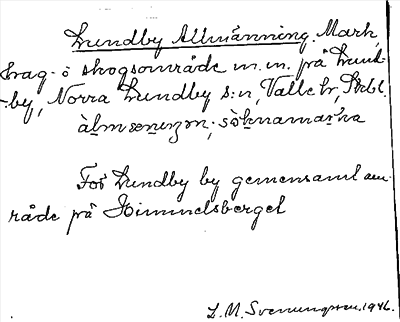 Lundby Allmänning. Mark,
hag- o skogsområde m.m. på Lund-
by, Norra Lundby s:n, Valle hr, Skbl.
För Lundby by gemensamt om-
råde på Himmelsberget
L. M. Svenungsson. 1946.